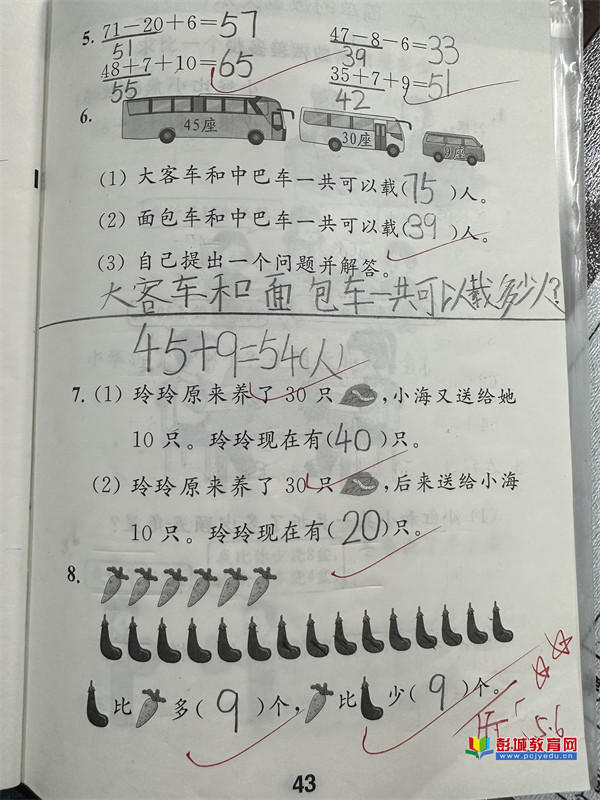 5. 71－20＋6＝57 47－8－6＝33
51 39
48＋7＋10＝65 35＋7＋9＝51
55 42
6. 45座 30座 9座
(1) 大客车和中巴车一共可以载(75)人。
(2) 面包车和中巴车一共可以载(39)人。
(3) 自己提出一个问题并解答。
大客车和面包车一共可以载多少人?
45+9=54(人)
7. (1) 玲玲原来养了 30 只 ,小海又送给她
10 只。玲玲现在有(40)只。
(2) 玲玲原来养了 30 只 ,后来送给小海
10 只。玲玲现在有(20)只。
8.
比 多( 9 )个, 比 少( 9 )个。
5.6
彭城教育网
www.pcjyedu.cn
43